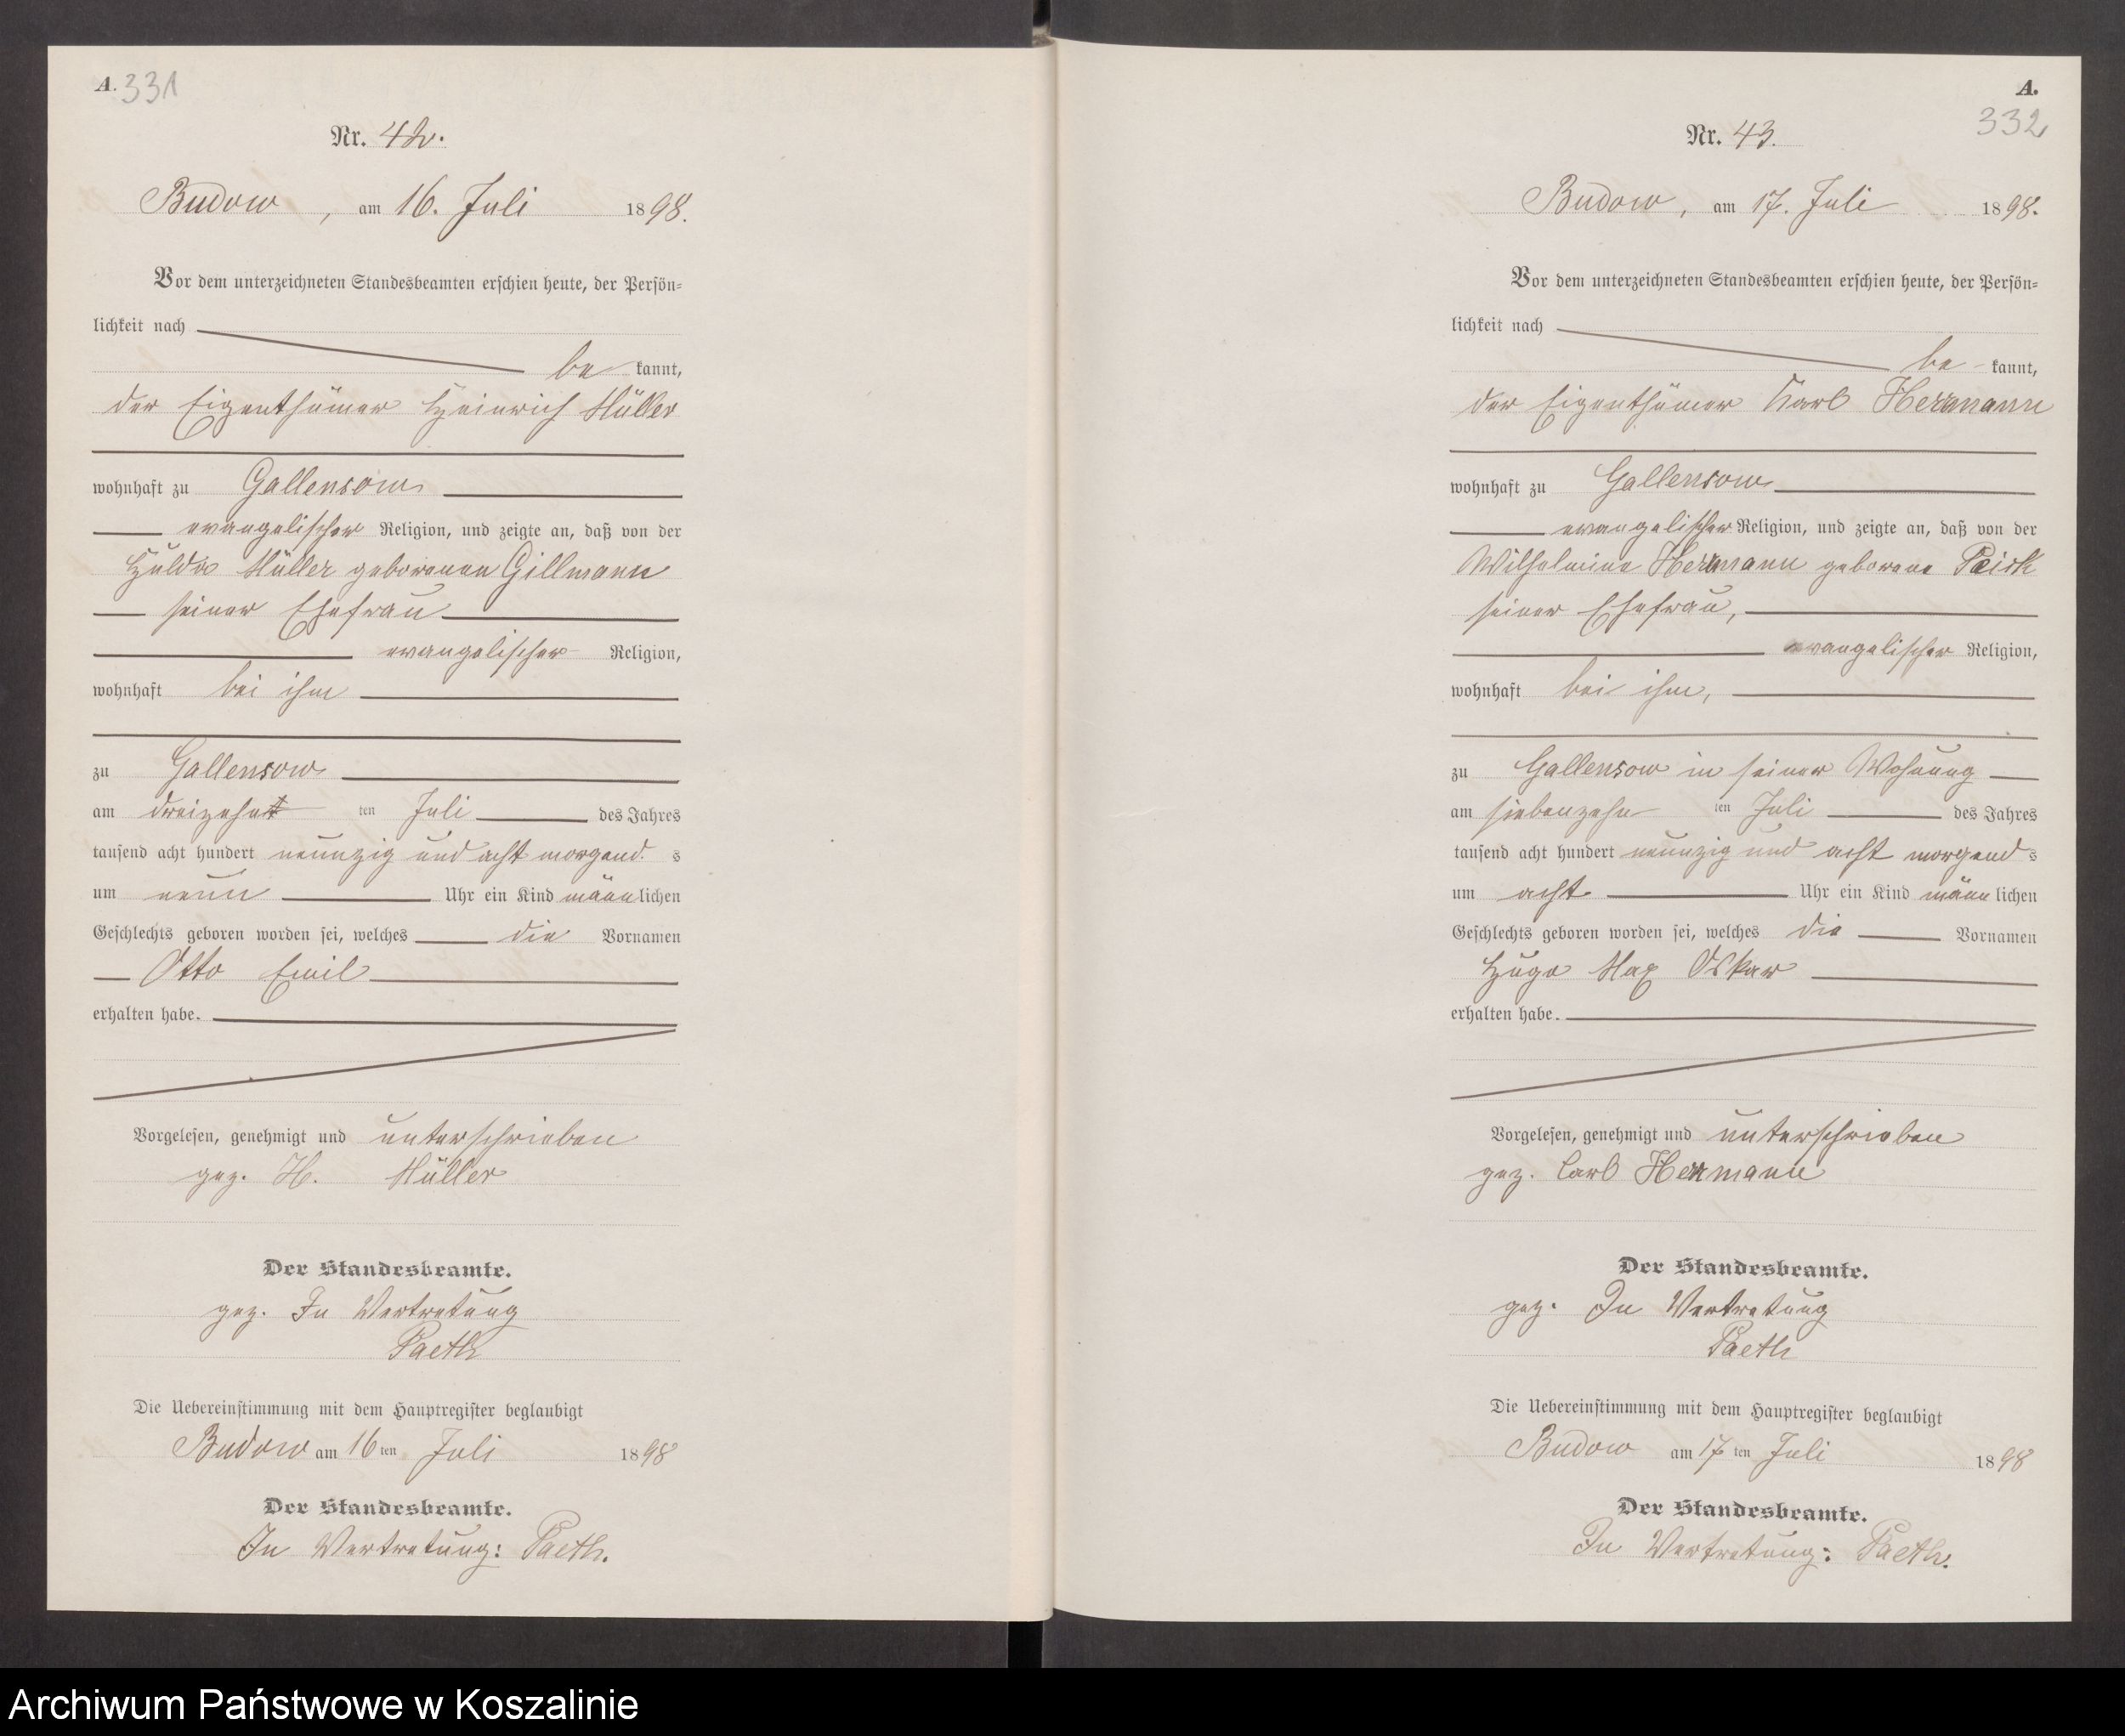 A. 331
Nr. 42.
Budow, am 16. Juli 1898.
Vor dem unterzeichneten Standesbeamten erschien heute, der Persön-
lichkeit nach
be kannt,
der Eigenthümer Heinrich Müller
wohnhaft zu Gallensow
evangelischer Religion, und zeigte an, daß von der
Hulda Müller geborenen Gillmann
seiner Ehefrau
evangelischer Religion,
wohnhaft bei ihm
zu Gallensow
am dreizehn ten Juli des Jahres
tausend acht hundert neunzig und acht morgend. s
um neun Uhr ein Kind männlichen
Geschlechts geboren worden sei, welches die Vornamen
Otto Emil
erhalten habe.
Vorgelesen, genehmigt und unterschrieben
gez. H. Müller
Der Standesbeamte.
gez. In Vertretung
Paeth
Die Uebereinstimmung mit dem Hauptregister beglaubigt
Budow am 16 ten Juli 1898
Der Standesbeamte.
In Vertretung: Paeth.
A.
332
Nr. 43.
Budow, am 17. Juli 1898.
Vor dem unterzeichneten Standesbeamten erschien heute, der Persön-
lichkeit nach
be kannt,
der Eigenthümer Karl Hermann
wohnhaft zu Gallensow
evangelischer Religion, und zeigte an, daß von der
Wilhelmine Hermann geborene
seiner Ehefrau,
evangelischer Religion,
wohnhaft bei ihm,
zu Gallensow in seiner Wohnung
am siebenzehn ten Juli des Jahres
tausend acht hundert neunzig und acht morgend s
um acht Uhr ein Kind männlichen
Geschlechts geboren worden sei, welches die Vornamen
Hugo Max Oskar
erhalten habe.
Vorgelesen, genehmigt und unterschrieben
gez. Carl Hermann
Der Standesbeamte.
gez. In Vertretung
Paeth
Die Uebereinstimmung mit dem Hauptregister beglaubigt
Budow am 17 ten Juli 1898
Der Standesbeamte.
In Vertretung: Paeth.
Archiwum Państwowe w Koszalinie